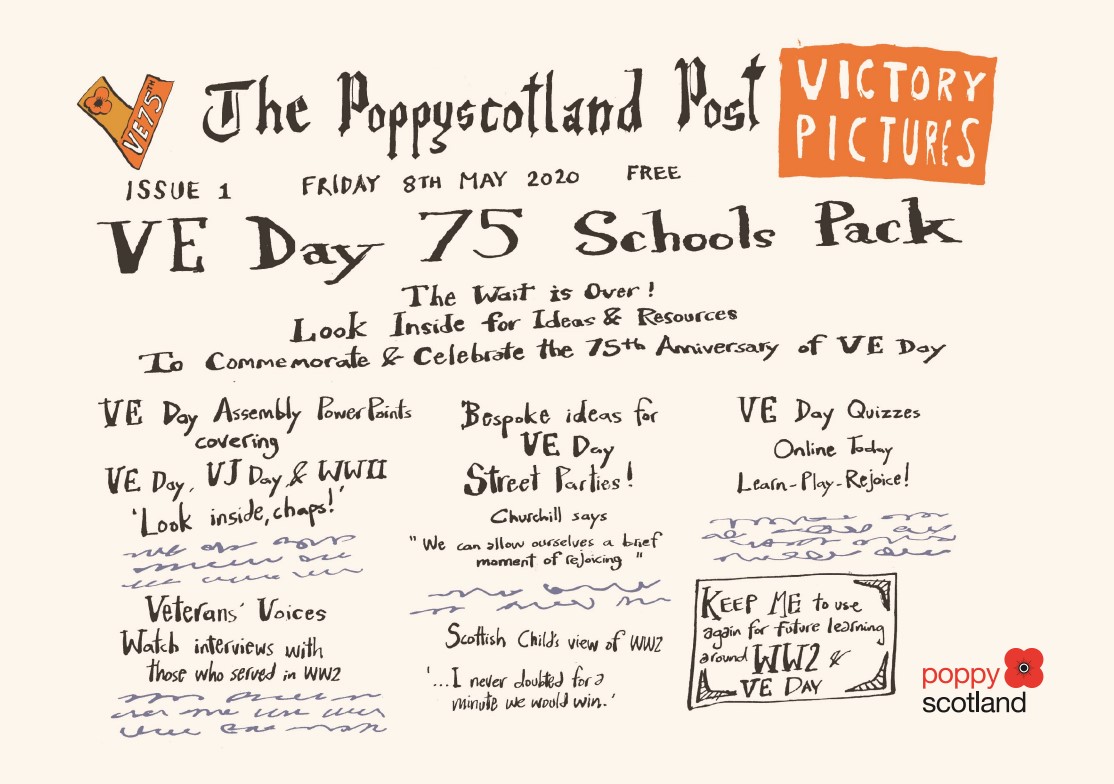 VE75TH
The Poppyscotland Post
VICTORY
PICTURES
ISSUE 1 FRIDAY 8TH MAY 2020 FREE
VE Day 75 Schools Pack
The Wait is Over!
Look Inside for Ideas & Resources
To Commemorate & Celebrate the 75th Anniversary of VE Day
VE Day Assembly PowerPoints
covering
VE Day, VJ Day, & WWII
'Look inside, chaps!'
Veterans' Voices
Watch interviews with
those who served in WW2
Bespoke ideas for
VE Day
Street Parties!
Churchill says
"We can allow ourselves a brief
moment of rejoicing"
Scottish Child's view of WW2
'...I never doubted for a
minute we would win.'
VE Day Quizzes
Online Today
Learn-Play-Rejoice!
KEEP ME to use
again for future learning
around WW2 &
VE DAY
poppy
scotland